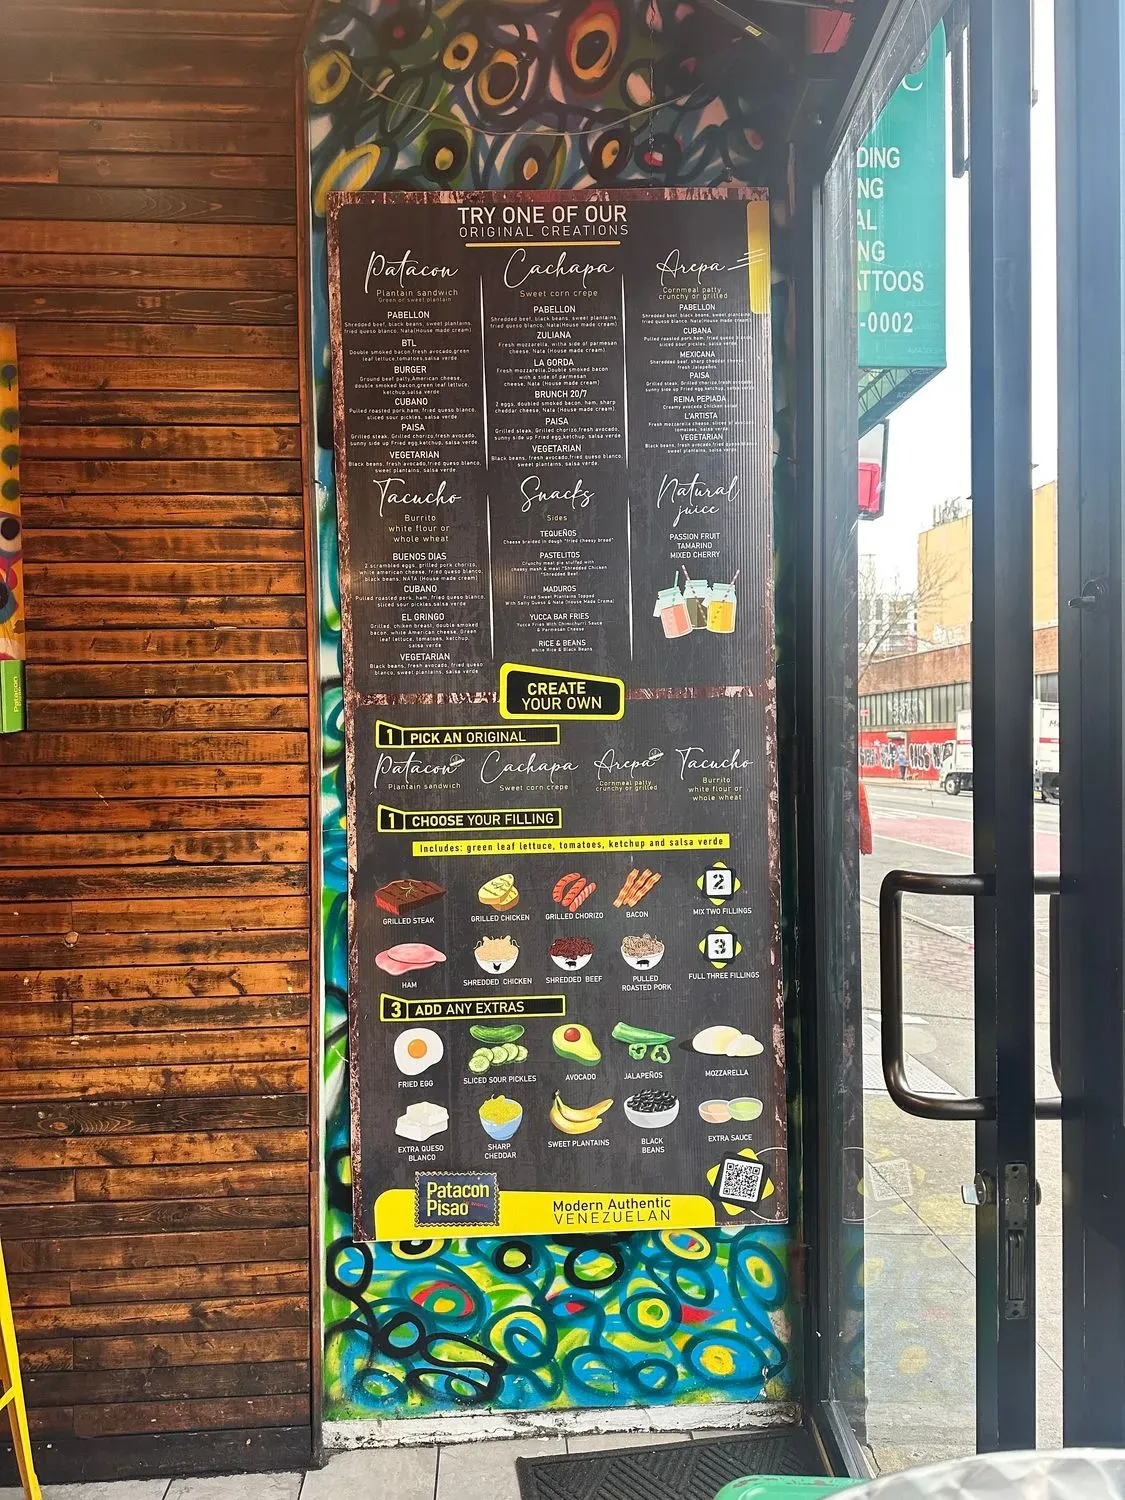 TRY ONE OF OUR
ORIGINAL CREATIONS
Patacon
Plantain sandwich
Green or sweet plantain
PABELLON
Shredded beef, black beans, sweet plantains,
fried queso blanco, Nata(House made cream)
BTL
Double smoked bacon,fresh avocado,green
leaf lettuce,tomatoes,salsa verde
BURGER
Ground beef patty,American cheese,
double smoked bacon,green leaf lettuce,
ketchup,salsa verde
CUBANO
Pulled roasted pork,ham, fried queso blanco,
sliced sour pickles, salsa verde
PAISA
Grilled steak, Grilled chorizo,fresh avocado,
sunny side up Fried egg,ketchup, salsa verde
VEGETARIAN
Black beans, fresh avocado,fried queso blanco,
sweet plantains, salsa verde
Cachapa
Sweet corn crepe
PABELLON
Shredded beef, black beans, sweet plantains,
fried queso blanco, Nata(House made cream)
ZULIANA
Fresh mozzarella, witha side of parmesan
cheese, Nata (House made cream)
LA GORDA
Fresh mozzarella,Double smoked bacon
with a side of parmesan
cheese, Nata (House made cream)
BRUNCH 20/7
2 eggs, doubled smoked bacon, ham, sharp
cheddar cheese, Nata (House made cream)
PAISA
Grilled steak, Grilled chorizo,fresh avocado,
sunny side up Fried egg,ketchup, salsa verde
VEGETARIAN
Black beans, fresh avocado,fried queso blanco,
sweet plantains, salsa verde
Arepa
Cornmeal patty
crunchy or grilled
PABELLON
Shredded beef, black beans, sweet plantains,
fried queso blanco, Nata(House made cream)
CUBANA
Pulled roasted pork ham, fried queso blanco,
sliced sour pickles, salsa verde
MEXICANA
Shredded beef, sharp cheddar cheese,
fresh Jalapeños
PAISA
Grilled steak, Grilled chorizo,fresh avocado,
sunny side up Fried egg,ketchup, salsa verde
REINA PEPIADA
Creamy avocado Chicken salad
L'ARTISTA
Fresh mozzarella cheese, sliced
tomatoes, salsa verde
VEGETARIAN
Black beans, fresh avocado,fried queso blanco,
sweet plantains, salsa verde
Tacucho
Burrito
white flour or
whole wheat
BUENOS DIAS
2 scrambled eggs, grilled pork chorizo,
white american cheese, fried queso blanco,
black beans, NATA (House made cream)
CUBANO
Pulled roasted pork, ham, fried queso blanco,
sliced sour pickles,salsa verde
EL GRINGO
Grilled, chiken breast, double smoked
bacon, white American cheese, Green
leaf lettuce, tomatoes, ketchup,
salsa verde
VEGETARIAN
Black beans, fresh avocado, fried queso
blanco, sweet plantains, salsa verde
Snacks
Sides
TEQUEÑOS
Cheese braided in dough "fried cheesy bread"
PASTELITOS
Crunchy meat pie stuffed with
cheesy mash & meat "Shredded Chicken
"Shredded Beef
MADUROS
Fried Sweet Plantains Topped
With Salty Queso & Nata (House Made Crema)
YUCCA BAR FRIES
Yucca Fries With Chimichurri Sauce
& Parmesan Cheese
RICE & BEANS
White Rice & Black Beans
Natural
juice
PASSION FRUIT
TAMARIND
MIXED CHERRY
CREATE
YOUR OWN
1 PICK AN ORIGINAL
Patacon
Plantain sandwich
Cachapa
Sweet corn crepe
Arepa
Cornmeal patty
crunchy or grilled
Tacucho
Burrito
white flour or
whole wheat
1 CHOOSE YOUR FILLING
Includes: green leaf lettuce, tomatoes, ketchup and salsa verde
GRILLED STEAK
GRILLED CHICKEN
GRILLED CHORIZO
BACON
2
MIX TWO FILLINGS
HAM
SHREDDED CHICKEN
SHREDDED BEEF
PULLED
ROASTED PORK
3
FULL THREE FILLINGS
3 ADD ANY EXTRAS
FRIED EGG
SLICED SOUR PICKLES
AVOCADO
JALAPEÑOS
MOZZARELLA
EXTRA QUESO
BLANCO
SHARP
CHEDDAR
SWEET PLANTAINS
BLACK
BEANS
EXTRA SAUCE
Patacon
Pisao
Modern Authentic
VENEZUELAN
DING
NG
AL
NG
ATTOOS
-0002
Patacon